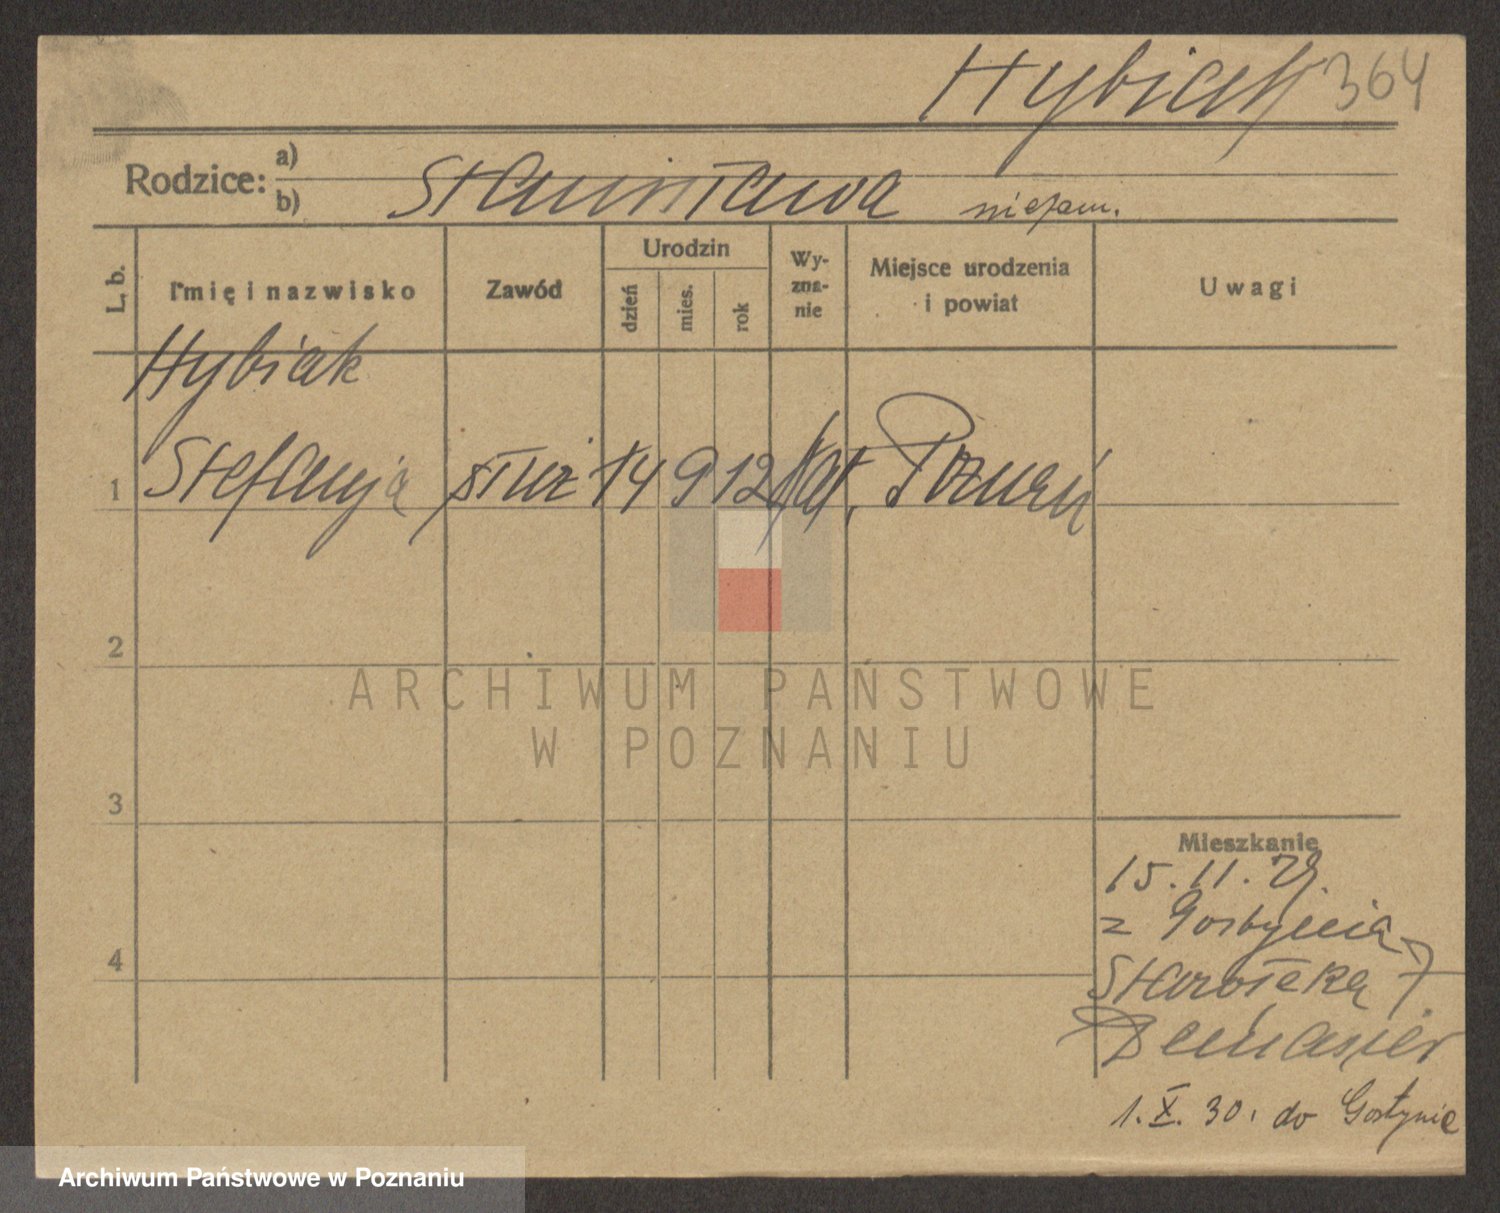 Hybiak 364
Rodzice: a)
b) Stanisława niezam.
L. b. Imię i nazwisko Zawód Urodzin dzień mies. rok Wy-zna-nie Miejsce urodzenia i powiat Uwagi
Hybiak
1 Stefanja służ 14 9 12 kat. Poznań
2
3
4
Mieszkanie
15.11.29.
z Gostynia
Starołęka 7
1.X.30. do Gostynia
ARCHIWUM PAŃSTWOWE
W POZNANIU
Archiwum Państwowe w Poznaniu